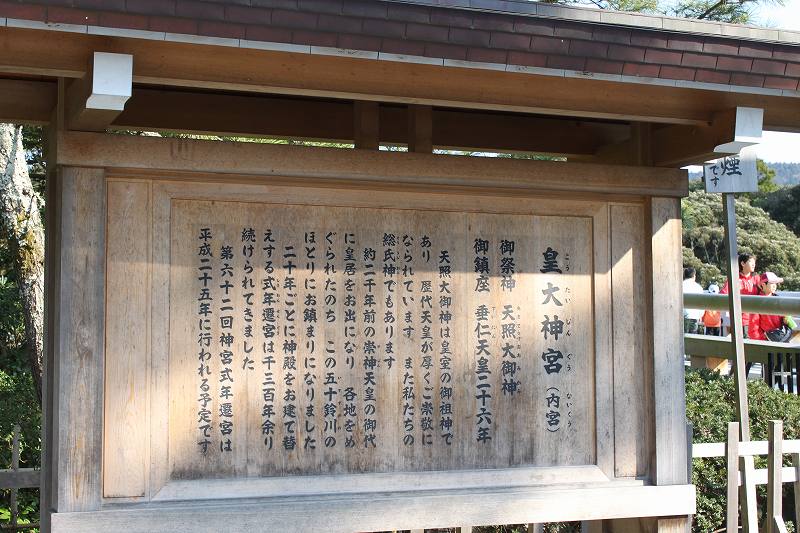 皇大神宮（内宮）
こうたいじんぐう　ないくう
御祭神　天照大御神
あまてらすおおみかみ
御鎮座　垂仁天皇二十六年
すいにん
天照大御神は皇室の御祖神で
あり　歴代天皇が厚くご崇敬に
なられています　また私たちの
総氏神でもあります
約二千年前の崇神天皇の御代
に皇居をお出になり　各地をめ
ぐられたのち　この五十鈴川の
ほとりにお鎮まりになりました
二十年ごとに神殿をお建て替
えする式年遷宮は千三百年余り
続けられてきました
第六十二回神宮式年遷宮は
平成二十五年に行われる予定です
煙
です